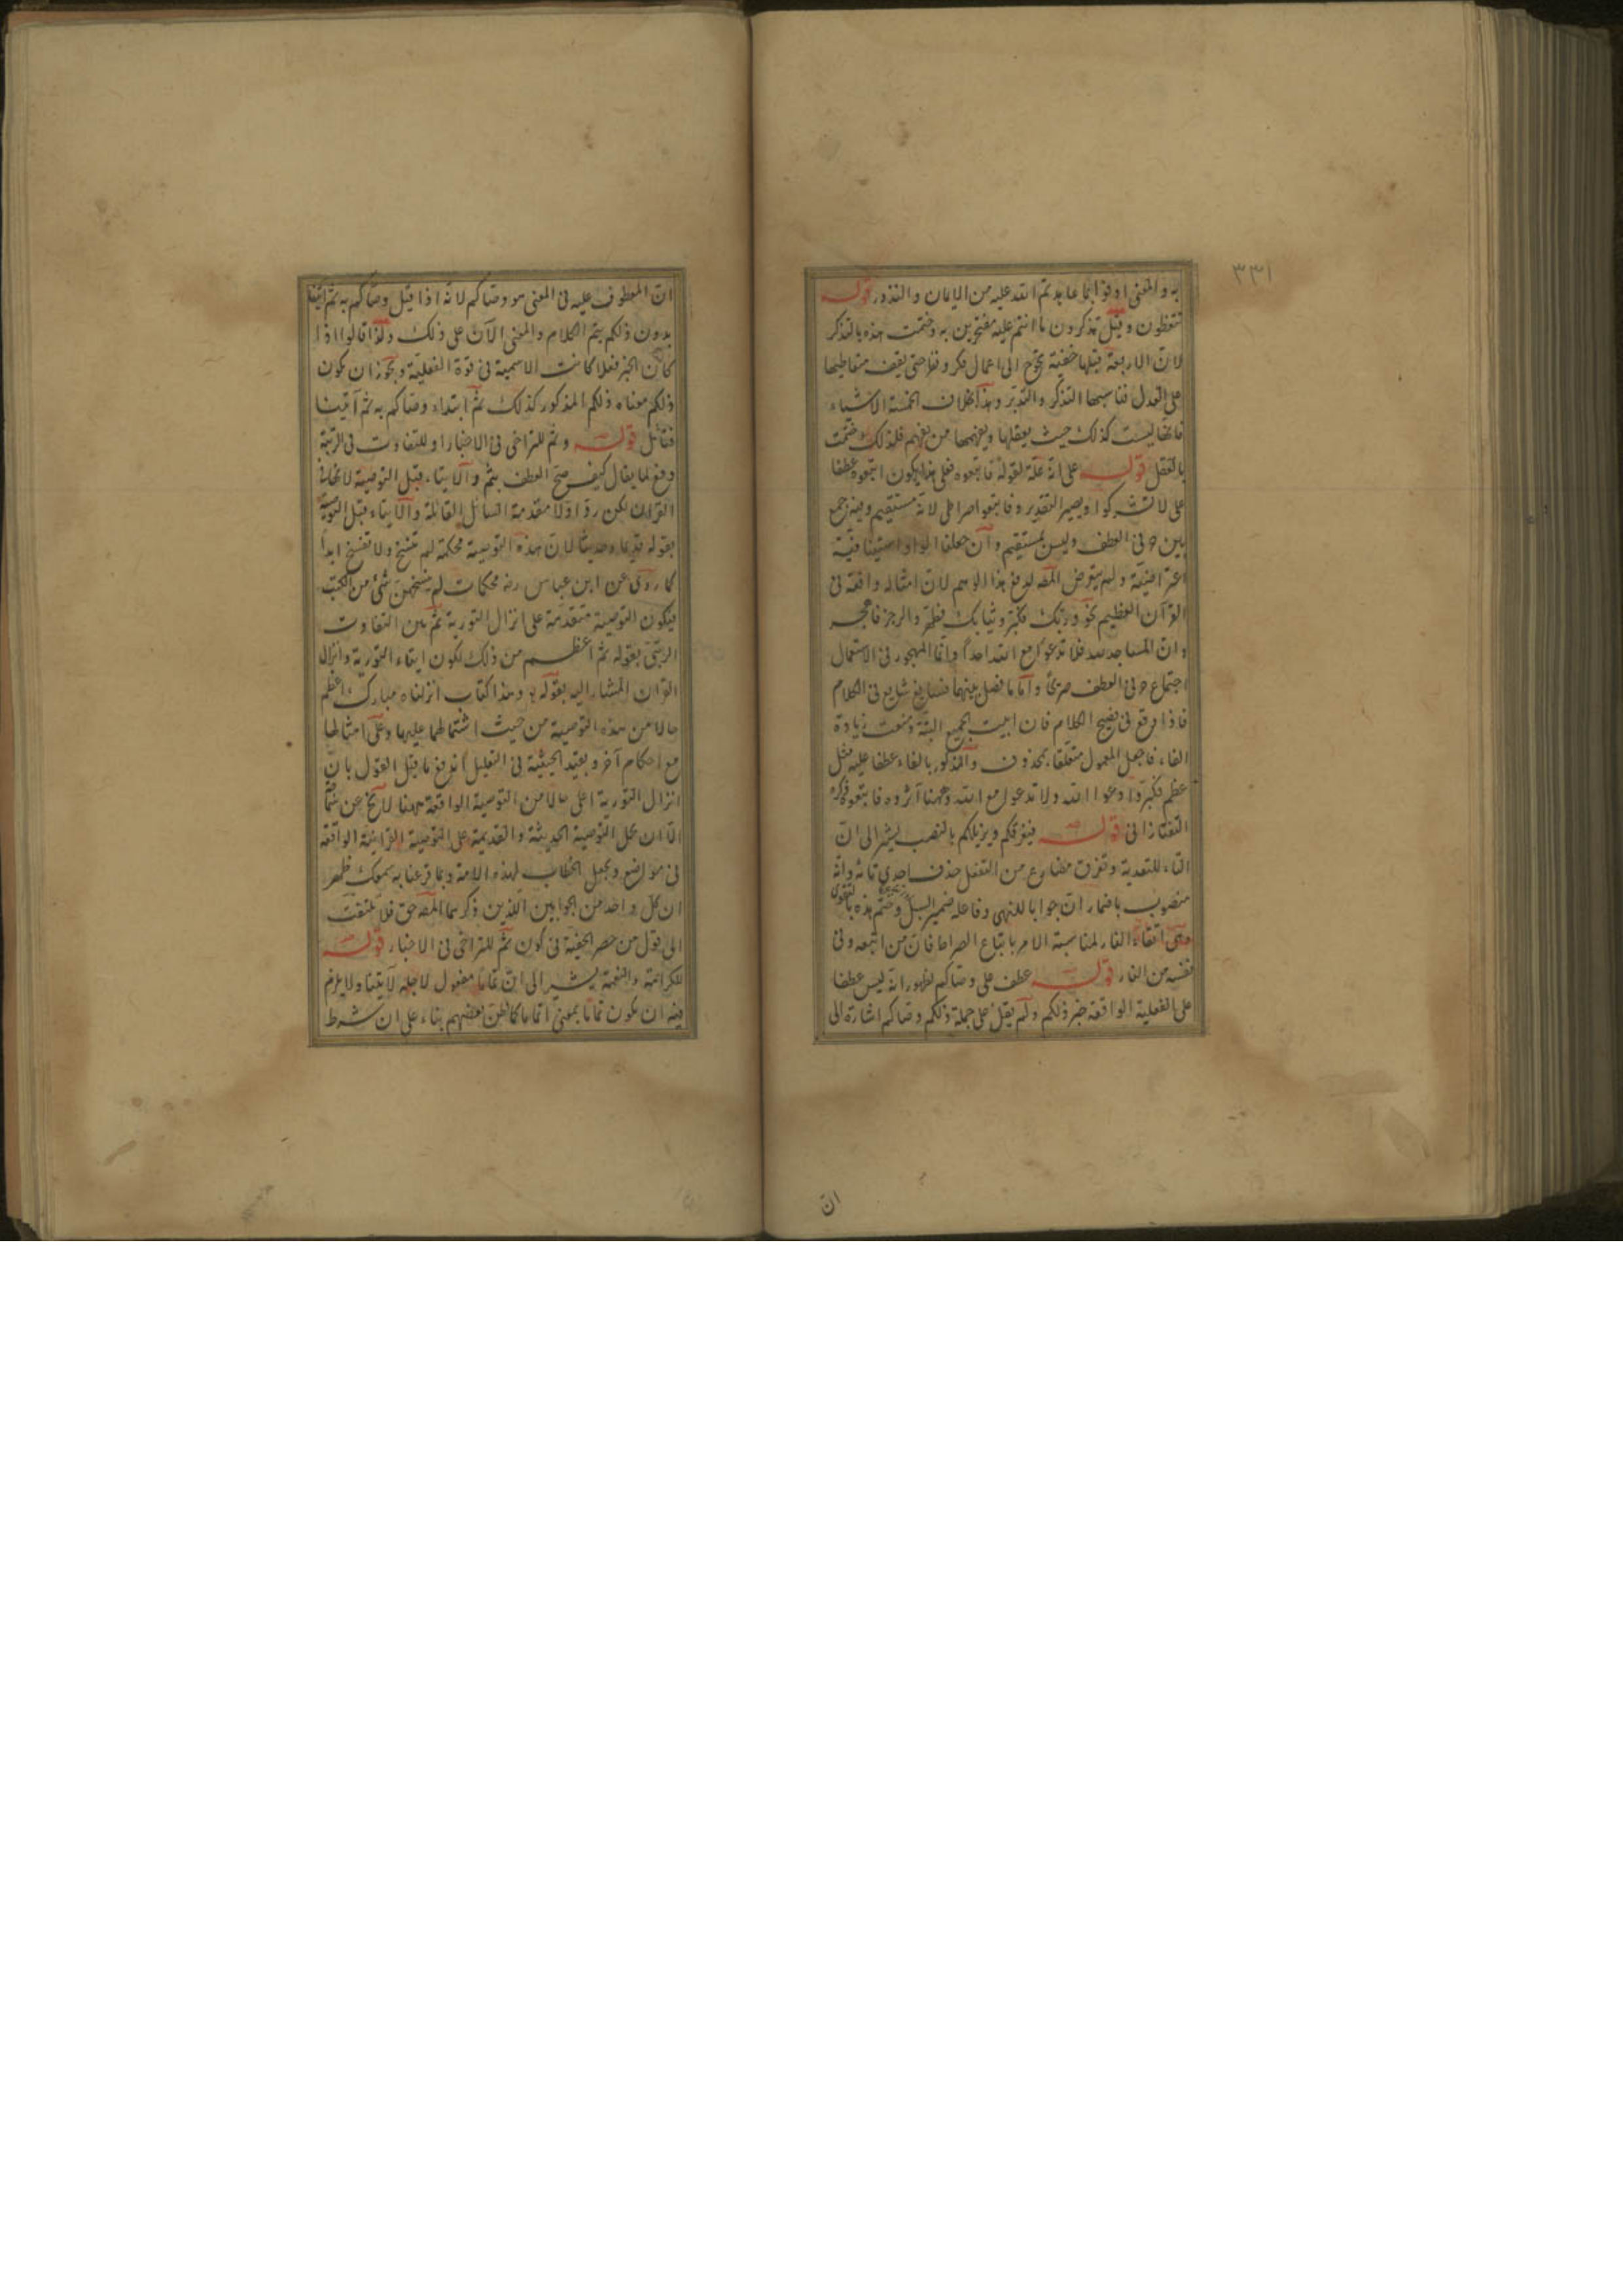 ٣٣١
به والمعنى اوفوا بما عاهدتم الله عليه من الايمان والنذور قوله
تتعظون وقيل تذكرون ما انتم عليه مفتخرين به وختمت هذه بالتذكر
لان الاربعة قبلها خفية تحوج الى اعمال فكر ونظر حتى يقف متعاطيها
على العدل فناسبها التذكر والتدبر وهذا بخلاف الخمسة الاشياء
فانها ليست كذلك حيث يعقلها ويفهمها من يفهم فلذلك ختمت
بالعقل قوله على انه علة لقوله فاتبعوه فعلى هذا يكون اتبعوه عطفا
على لا تشركوا ويصير التقدير وفاتبعوا صراطى لانه مستقيم وفيه جمع
بين حرفى العطف وليس بمستقيم وان جعلنا الواو استينافية
اعتراضية ولم يتعرض المص لدفع هذا الوهم لان امثاله واقعة فى
القرآن العظيم نحو وربك فكبر وثيابك فطهر والرجز فاهجر
وان المساجد لله فلا تدعوا مع الله احدا وانما المهجور فى الاستعمال
اجتماع حرفى العطف صريحا واما ما فصل بينهما فسايغ شايع فى الكلام
فاذا وقع فى فصيح الكلام فان ابيت الجميع البتة ومنعت زيادة
الفاء فاجعل المعمول متعلقا بمحذوف والمذكور بالفاء عطفا عليه مثل
عظم فكبر وادعوا الله ولا تدعوا مع الله وههنا آثروه فاتبعوه ذكره
التفتازانى قوله فيفرقكم ويزيلكم بالنصب يشير الى ان
التاء للتعدية وتفرق مضارع من التفعل حذف احدى تائه وانه
منصوب باضمار ان جوابا للنهى وفاعله ضمير السبل وختم هذه بالتقوى
اتقاء النار لمناسبة الامر باتباع الصراط فان من اتبعه وقى
نفسه من النار قوله عطف على وصاكم لظهور انه ليس عطفا
على الفعلية الواقعة خبر ذلكم ولم يقل على جملة ذلكم وصاكم اشارة الى
ان
ان المعطوف عليه فى المعنى هو وصاكم لانه اذا قيل وصاكم به ثم اتينا
بدون ذلكم يتم الكلام والمعنى الآن على ذلك ولذا قالوا اذا
كان الخبر فعلا كانت الاسمية فى قوة الفعلية ويجوز ان يكون
ذلكم معناه ذلكم المذكور كذلك ثم ابتداء وصاكم به ثم آتينا
فتأمل قوله وثم للتراخى فى الاخبار او للتفاوت فى الرتبة
دفع لما يقال كيف صح العطف بثم والايتاء قبل التوصية لانها فى
القرآن لكن رد اولا مقدمة السائل القائلة والايتاء قبل التوصية
بقوله قديما وحديثا لان هذه التوصية محكمة لم تنسخ ولا تنسخ ابدا
كما روى عن ابن عباس رضه محكمات لم ينسخهن شئ من الكتب
فيكون التوصية متقدمة على انزال التورية ثم بين التفاوت
الرتبى بقوله ثم اعظم من ذلك لكون ايتاء التورية وانزال
القرآن المشار اليه بقوله وهذا كتاب انزلناه مبارك اعظم
حالا من هذه التوصية من حيث اشتمالهما عليها وعلى امثالها
مع احكام آخر وبقيد الحيثية فى التعليل اندفع ما قيل القول بان
انزال التورية اعلى حالا من التوصية الواقعة ههنا
الا ان يحمل التوصية الحديثة والقديمة على التوصية القرآنية الواقعة
فى مواضع ويجعل الخطاب لهذه الامة وبما قرعنا به سمعك ظهر
ان كل واحد من الجوابين اللذين ذكرهما المص حق فلا تلتفت
الى قول من حصر الحقية فى كون ثم للتراخى فى الاخبار قوله
للكرامة والنعمة يشير الى ان تماما مفعول لاجله لآتينا ولا يلزم
فيه ان يكون تماما بمعنى اتماما كما ظن بعضهم بناء على ان شرط